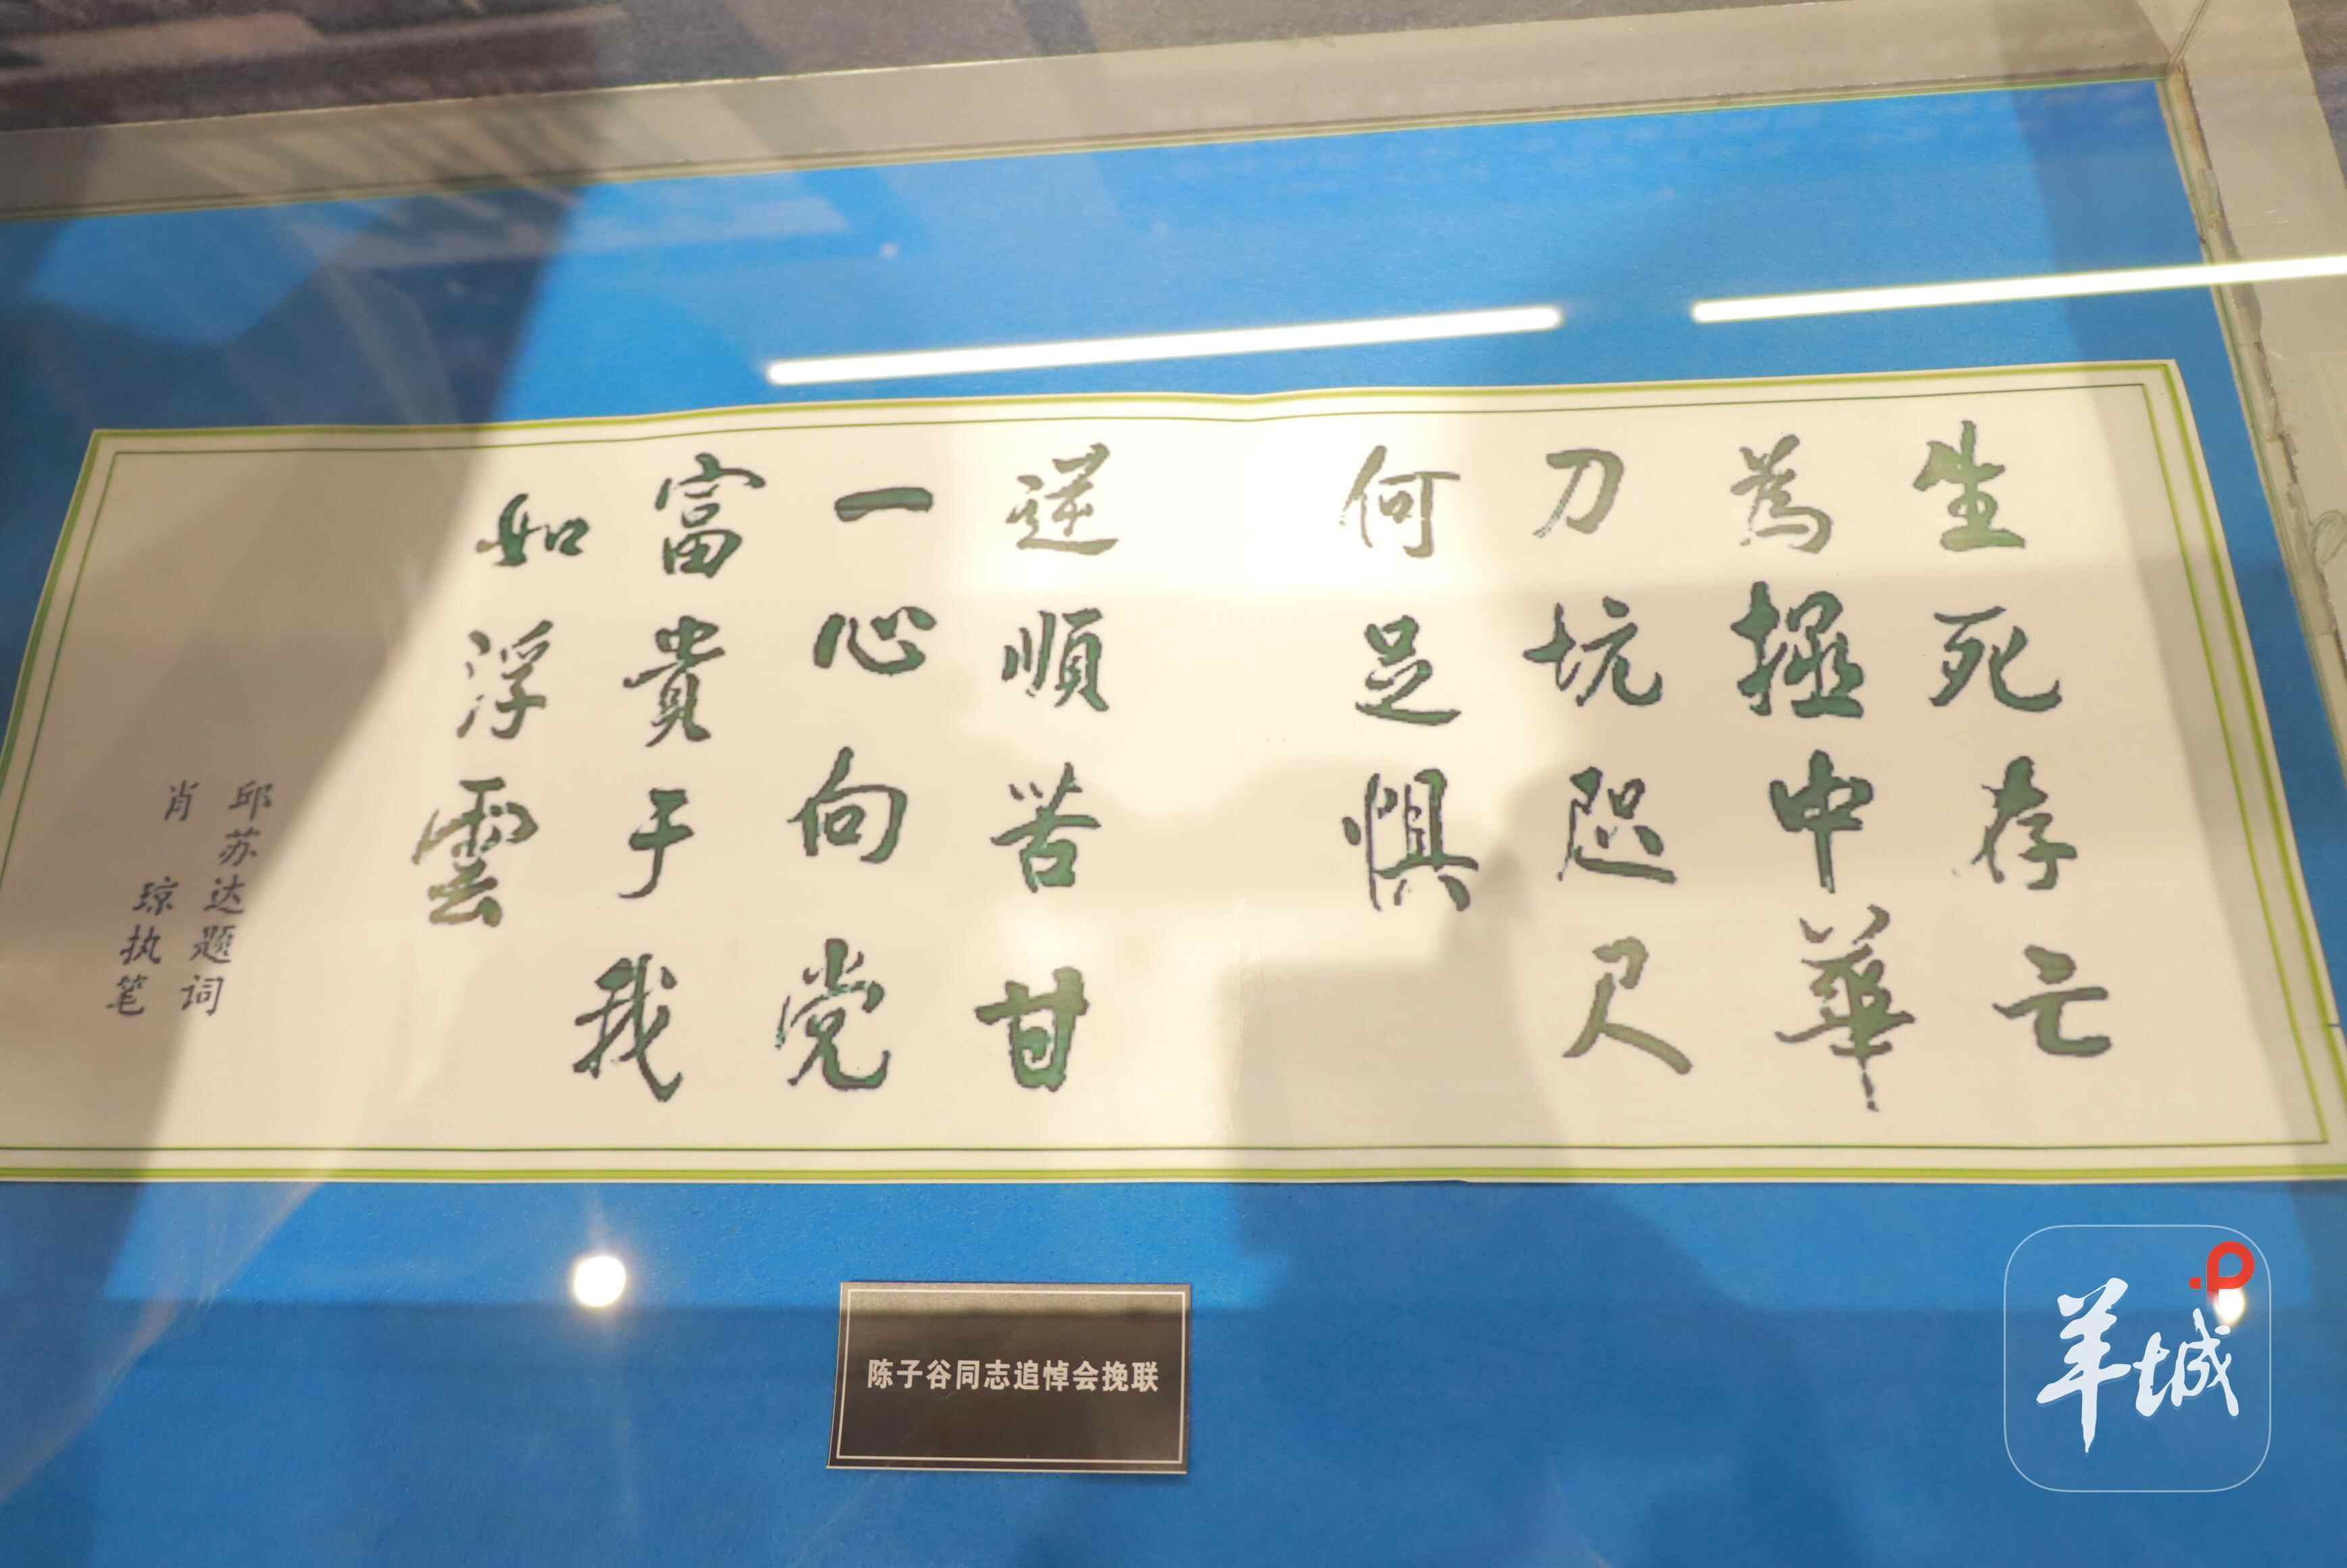 生死存亡
為拯中華
刀坑咫尺
何足懼
逆順苦甘
一心向党
富貴于我
如浮雲
邱苏达题词
肖琼执笔
陈子谷同志追悼会挽联
羊城